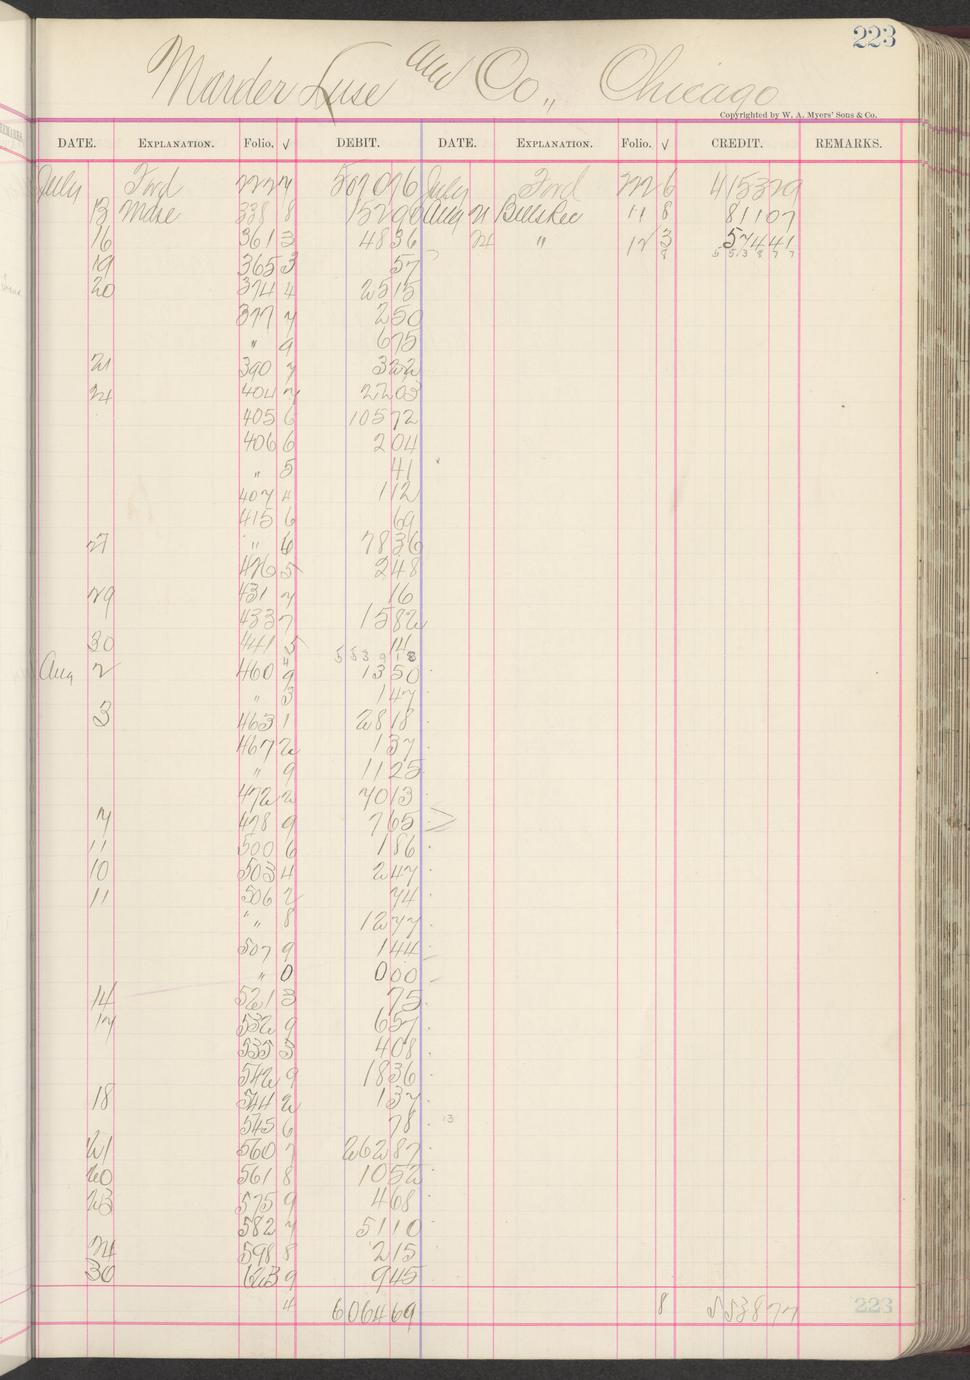 223
Marder Luse and Co., Chicago
Copyrighted by W. A. Myers' Sons & Co.
DATE. EXPLANATION. Folio. √ DEBIT. DATE. EXPLANATION. Folio. √ CREDIT. REMARKS.
July Ford 222 7 507026 July Ford 222 6 415329
13 Mdse 338 8 15290 Aug 21 Bills Rec 11 8 81107
16 361 3 4836 24 " 12 3 57441
19 365 3 57 8 553877
20 374 4 2515
377 7 250
" 9 675
21 390 7 322
24 404 7 2203
405 6 10572
406 6 204
" 5 41
407 4 112
415 6 69
27 " 6 7836
426 5 248
29 431 7 16
433 7 1582
30 441 5 14
583918
Aug 2 460 9 1350
" 3 147
3 463 1 2818
467 2 137
" 9 1125
472 2 7013
7 478 9 765
11 500 6 186
10 503 4 247
11 506 2 74
" " 8 1277
507 9 144
" 0 000
14 521 3 75
17 532 9 657
535 3 408
542 9 1836
18 544 2 137
545 6 78 13
21 560 7 26287
20 561 8 1052
23 575 9 468
582 7 5110
24 598 8 215
30 623 9 945
4 606469 8 553877
223